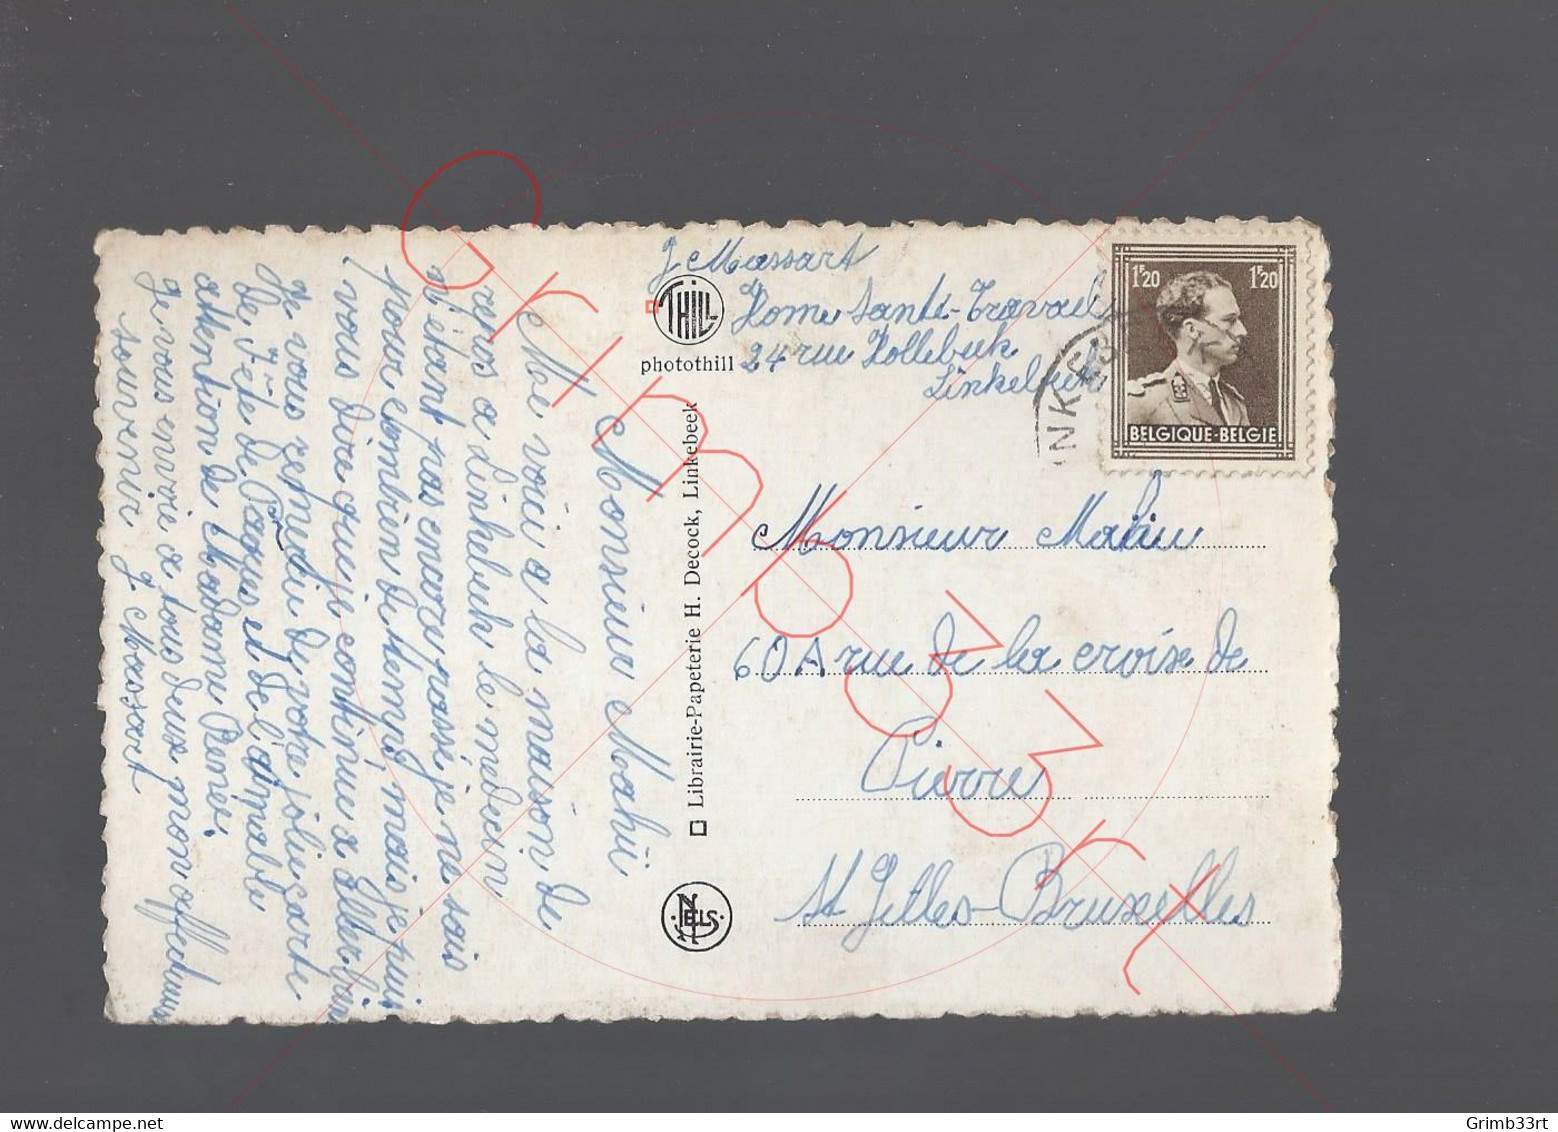 J Massart
Home Santé-Travail
24 rue Hollebeek
Linkebeek
THILL
photothill
Librairie-Papeterie H. Decock, Linkebeek
NELS
1F20 1F20
BELGIQUE-BELGIE
INKEB
Monsieur Mahieu
60A rue de la croise de
Pierre
St Gilles-Bruxelles
Monsieur Mahii
Me voici a la maison de
repos a Linkebeek le médecin
n'etant pas encore passé je ne sois
pour combien de temps, mais je puis
vous dire que je continue a aller bien
Je vous remercie de votre jolie carte
de Fête de Paque et de l'aimable
attention de Madame Renée.
Je vous envoie a tous deux mon affectueux
souvenir J Massart
Grimb33rt
Grimb33rt